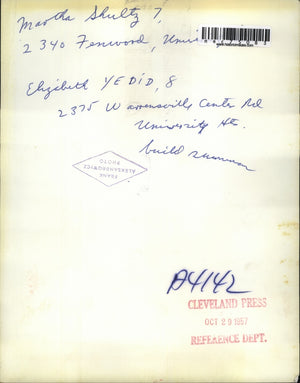 Martha Shultz 7,
2340 Fenwood, Univ
Elizabeth YEDID, 8
2375 Warrensville Center Rd
University Hts.
build snowman
FRANK
ALEKSANDROWICZ
PHOTO
A4142
CLEVELAND PRESS
OCT 29 1957
REFERENCE DEPT.